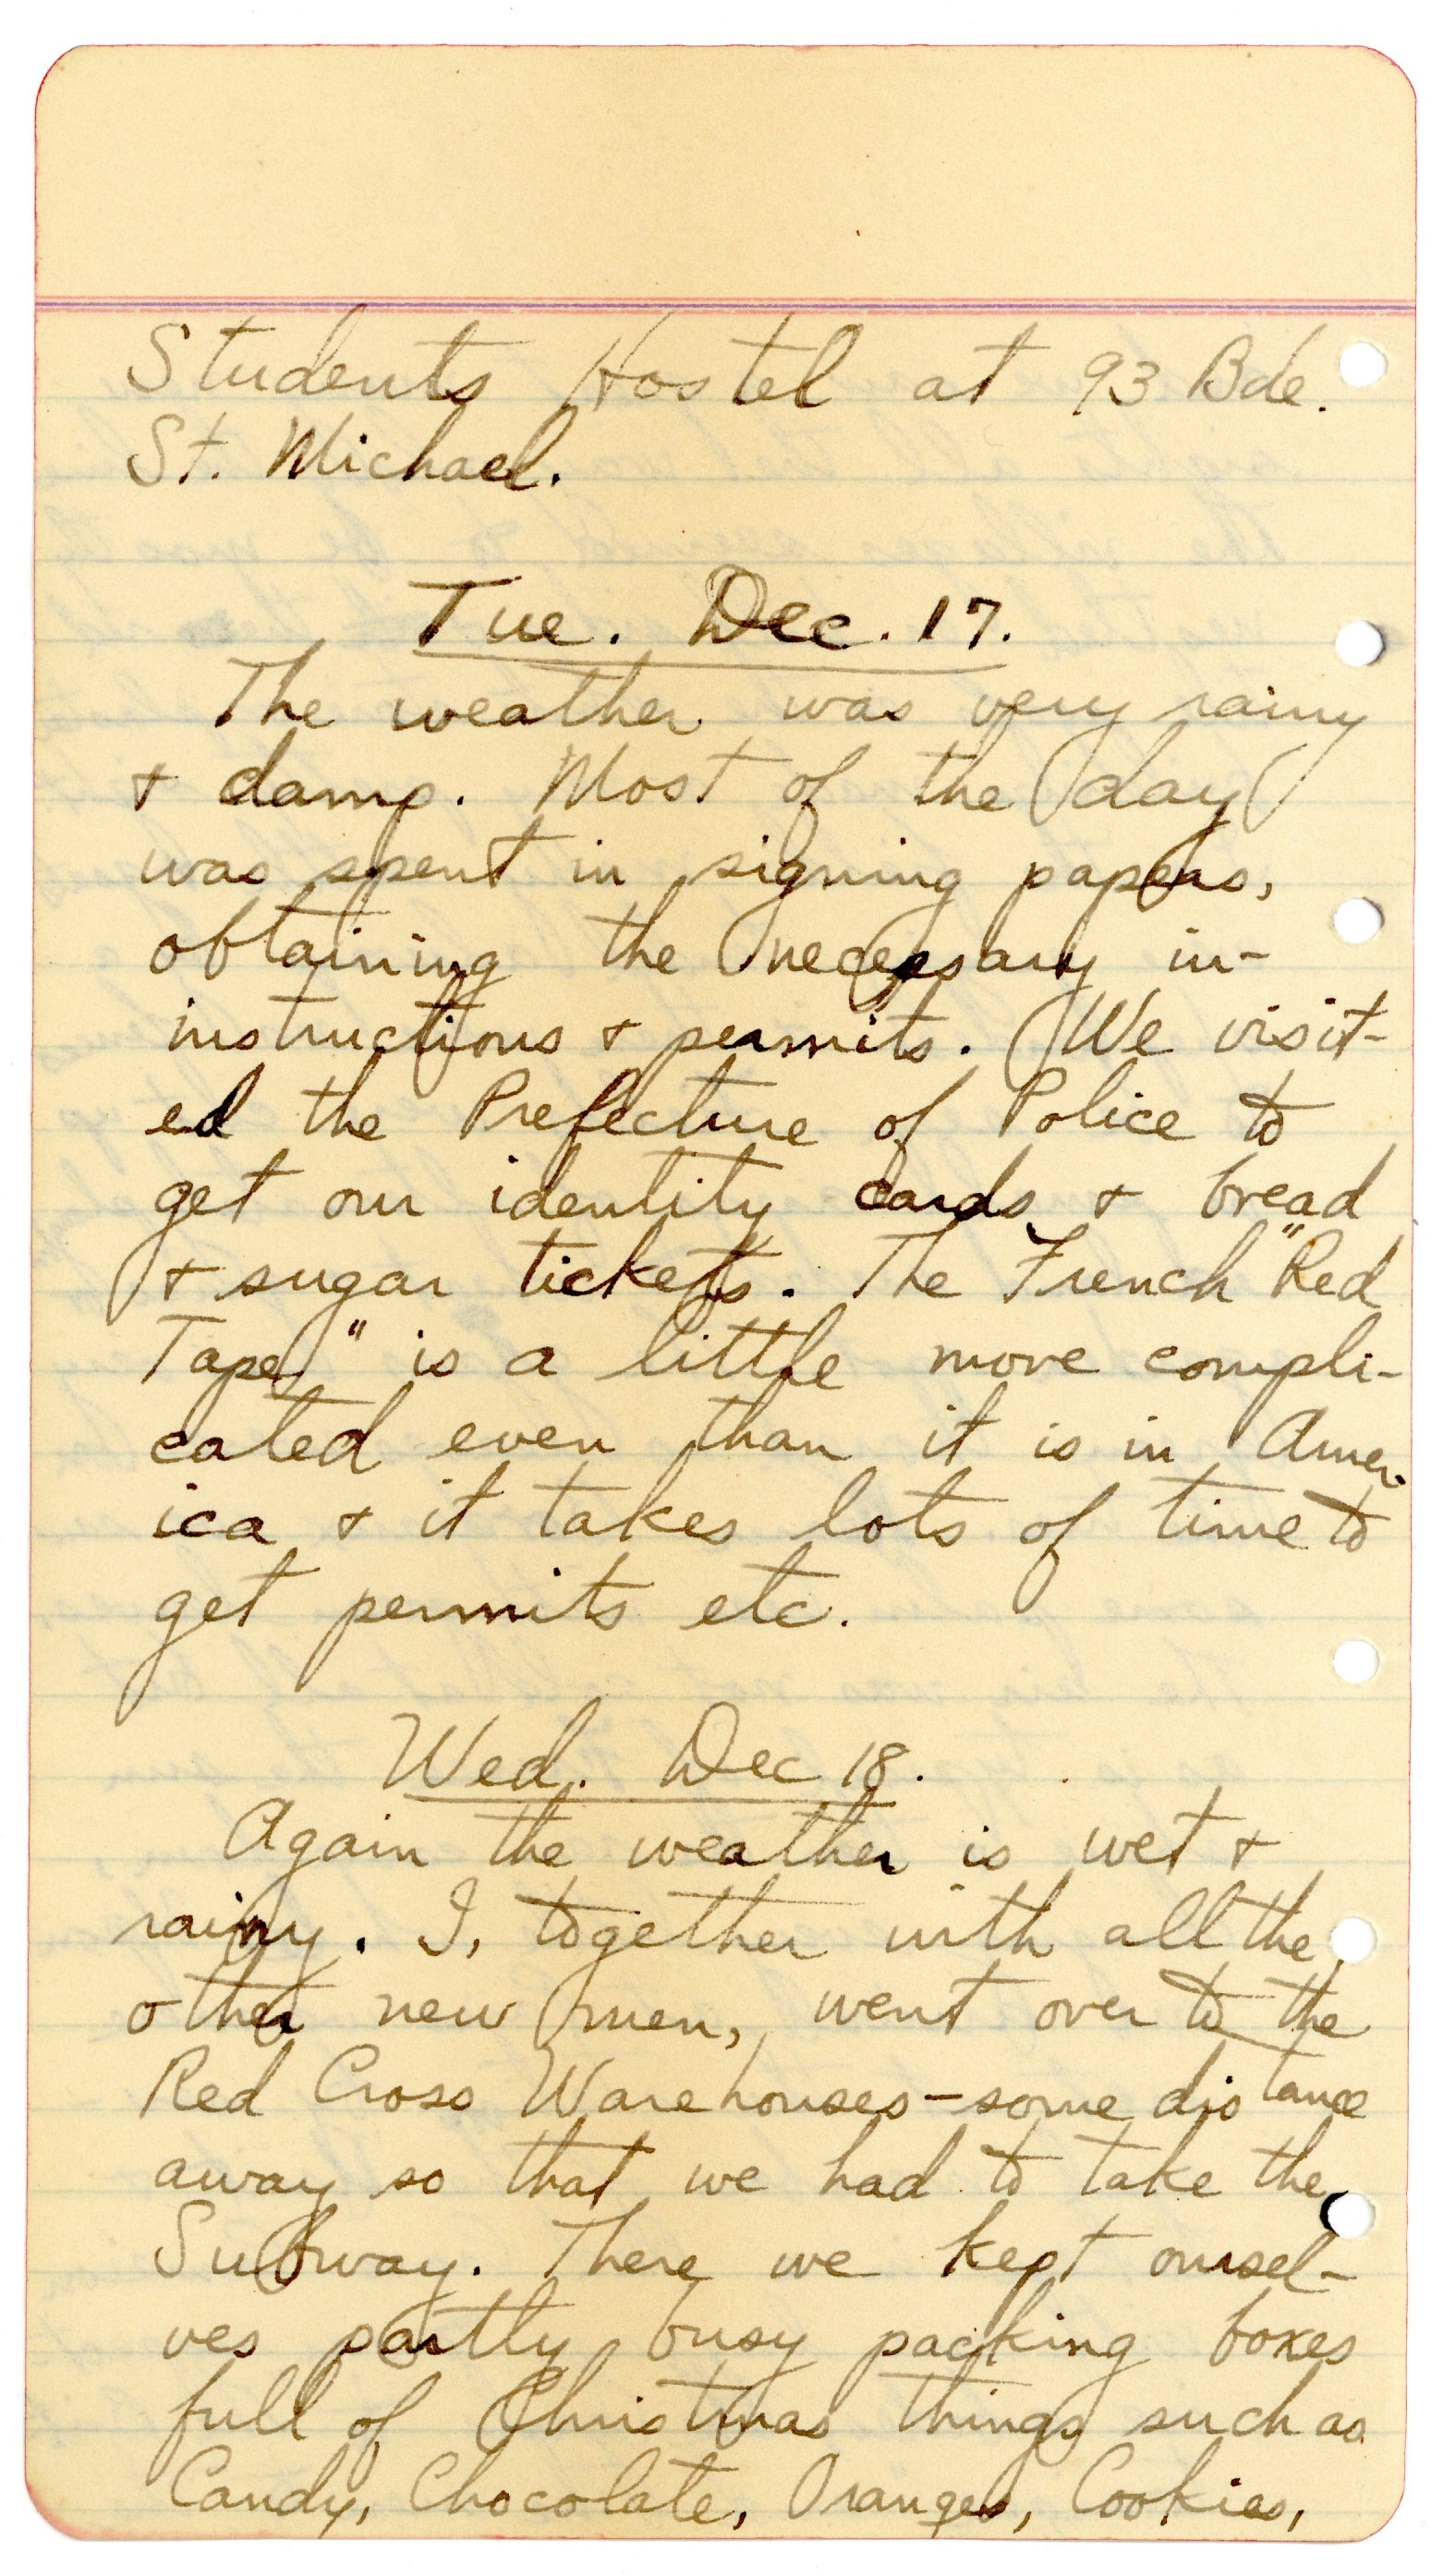 Students Hostel at 93 Bde.
St. Michael.
Tue. Dec. 17.
The weather was very rainy
+ damp. Most of the day
was spent in signing papers,
obtaining the necessary in-
instructions + permits. We visit-
ed the Prefecture of Police to
get our identity cards + bread
+ sugar tickets. The French "Red
Tape" is a little more compli-
cated even than it is in Amer-
ica + it takes lots of time to
get permits etc.
Wed. Dec 18.
Again the weather is wet +
rainy. I, together with all the
other new men, went over to the
Red Cross Warehouses - some distance
away so that we had to take the
Subway. There we kept oursel-
ves partly busy packing boxes
full of Christmas things such as
Candy, Chocolate, Oranges, Cookies,